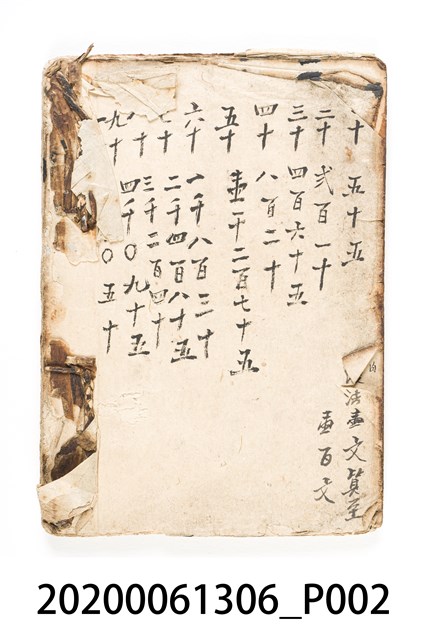 十 五十五
二十 弍百一十
三十 四百六十五
四十 八百二十
五十 壹千二百七十五
六十 一千八百三十
七十 二千四百八十五
十 三千二百四十
九十 四千〇九十五
〇五十
法壹文算至
壹百文
20200061306_P002